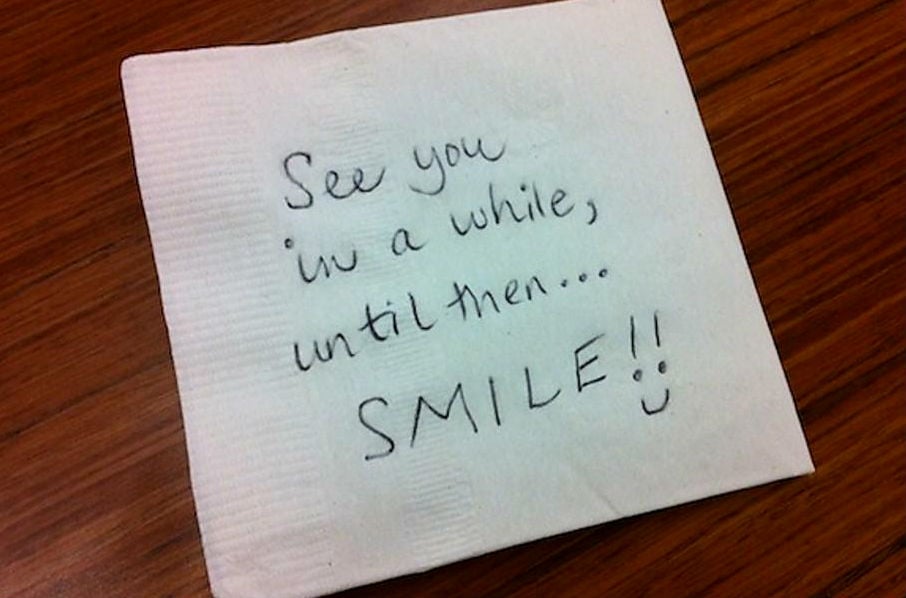 See you
in a while,
until then...
SMILE!!